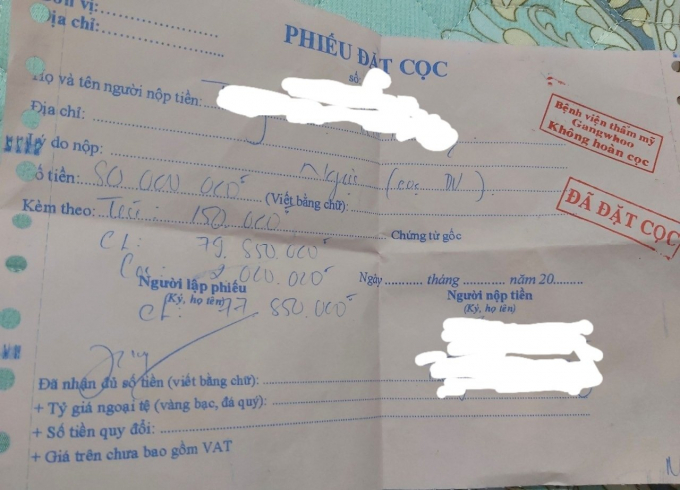 Đơn vị:
Địa chỉ:
PHIẾU ĐẶT CỌC
Số:
Họ và tên người nộp tiền:
Địa chỉ:
Bệnh viện thẩm mỹ
Gangwhoo
Không hoàn cọc
Lý do nộp: Ngực (cọc DV)
Số tiền: 80.000.000đ (Viết bằng chữ):
ĐÃ ĐẶT CỌC
Kèm theo: 150.000 Chứng từ gốc
CL: 79.850.000đ
2.000.000đ
Ngày tháng năm 20
Người lập phiếu
(Ký, họ tên)
Người nộp tiền
(Ký, họ tên)
CL: 77.850.000đ
Đã nhận đủ số tiền (viết bằng chữ):
+ Tỷ giá ngoại tệ (vàng bạc, đá quý):
+ Số tiền quy đổi:
+ Giá trên chưa bao gồm VAT